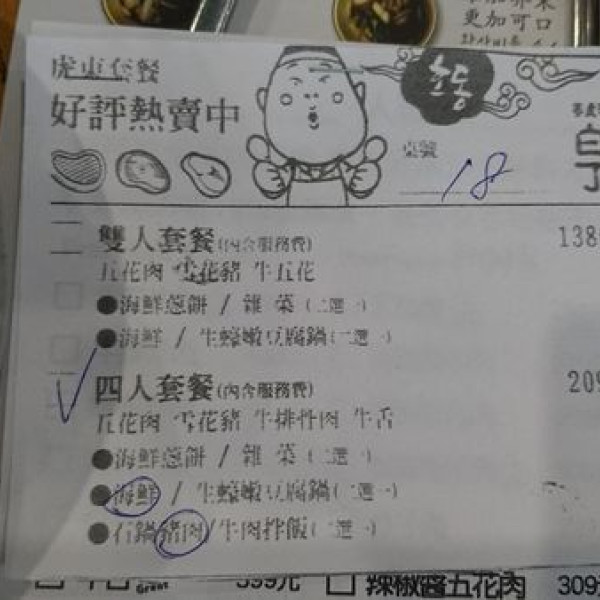 更加可口
虎東套餐
好評熱賣中
초동
桌號
18
雙人套餐(內含服務費)
138
五花肉 雪花豬 牛五花
●海鮮蔥餅 / 雜菜(二選一)
●海鮮 / 生蠔嫩豆腐鍋(二選一)
四人套餐(內含服務費)
209
五花肉 雪花豬 牛排件肉 牛舌
●海鮮蔥餅 / 雜菜(二選一)
●海鮮 / 生蠔嫩豆腐鍋(二選一)
●石鍋豬肉/牛肉拌飯(二選一)
Great
399元
辣椒醬五花肉
309元